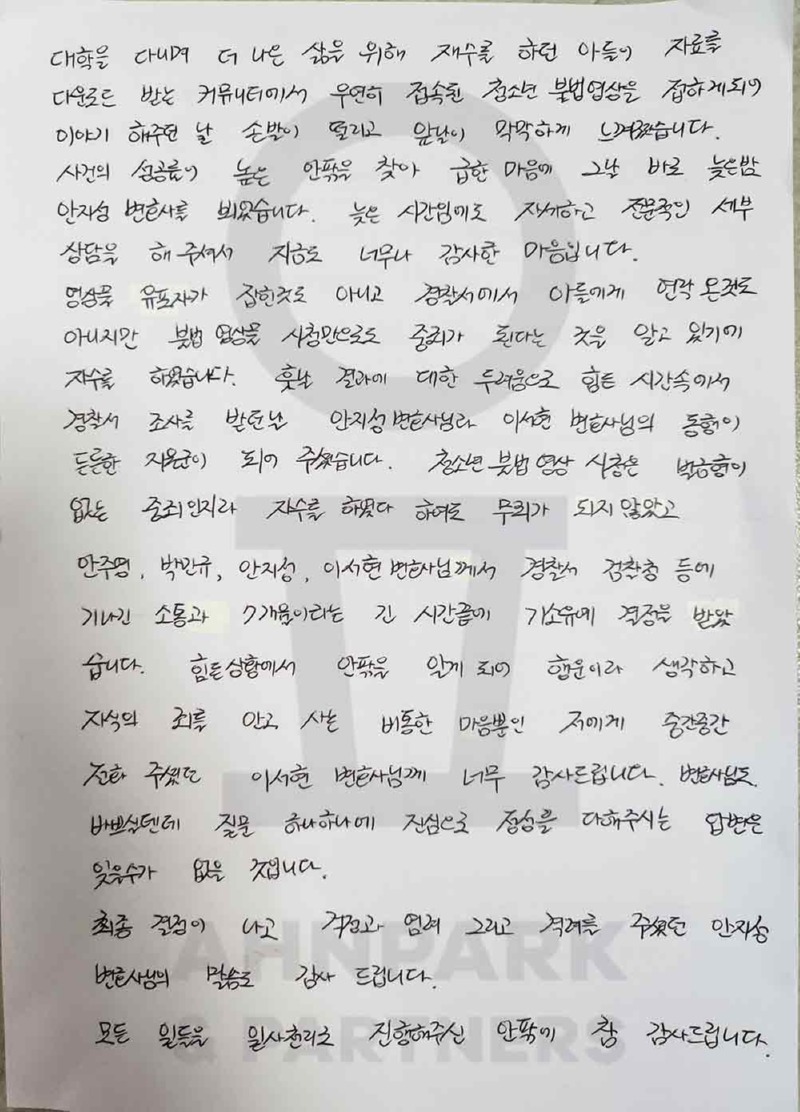 대학을 다니며 더 나은 삶을 위해 재수를 하던 아들이 자료를
다운로드 받는 커뮤니티에서 우연히 접속된 청소년 불법영상을 접하게되어
이야기 해주던 날 손발이 떨리고 앞날이 막막하게 느껴졌습니다.
사건의 성공률이 높은 안팍을 찾아 급한 마음에 그날 바로 늦은밤
안지성 변호사를 뵈었습니다. 늦은 시간임에도 자세하고 전문적인 세부
상담을 해 주셔서 지금도 너무나 감사한 마음입니다.
영상물 유포자가 잡힌것도 아니고 경찰서에서 아들에게 연락 온것도
아니지만 불법 영상물 시청만으로도 중죄가 된다는 것을 알고 있기에
자수를 하였습니다. 훗날 결과에 대한 두려움으로 힘든 시간속에서
경찰서 조사를 받던날 안지성변호사님과 이서현 변호사님의 동행이
든든한 지원군이 되어 주셨습니다. 청소년 불법 영상 시청은 벌금형이
없는 중죄인지라 자수를 하였다 하여도 무죄가 되지 않았고
안주영, 박민규, 안지성, 이서현변호사님께서 경찰서 검찰청 등에
기나긴 소통과 7개월이라는 긴 시간끝에 기소유예 결정을 받았
습니다. 힘든상황에서 안팍을 알게 되어 행운이라 생각하고
자식의 죄를 안고 사는 비통한 마음뿐인 저에게 중간중간
전화 주셨던 이서현 변호사님께 너무 감사드립니다. 변호사님도
바쁘실텐데 질문 하나하나에 진심으로 정성을 다해주시는 답변은
잊을수가 없을 것입니다.
최종 결정이 나고 걱정과 염려 그리고 격려를 주셨던 안지성
변호사님의 말씀도 감사 드립니다.
모든 일들을 일사천리로 진행해주신 안팍에 참 감사드립니다.
AHNPARK
& PARTNERS